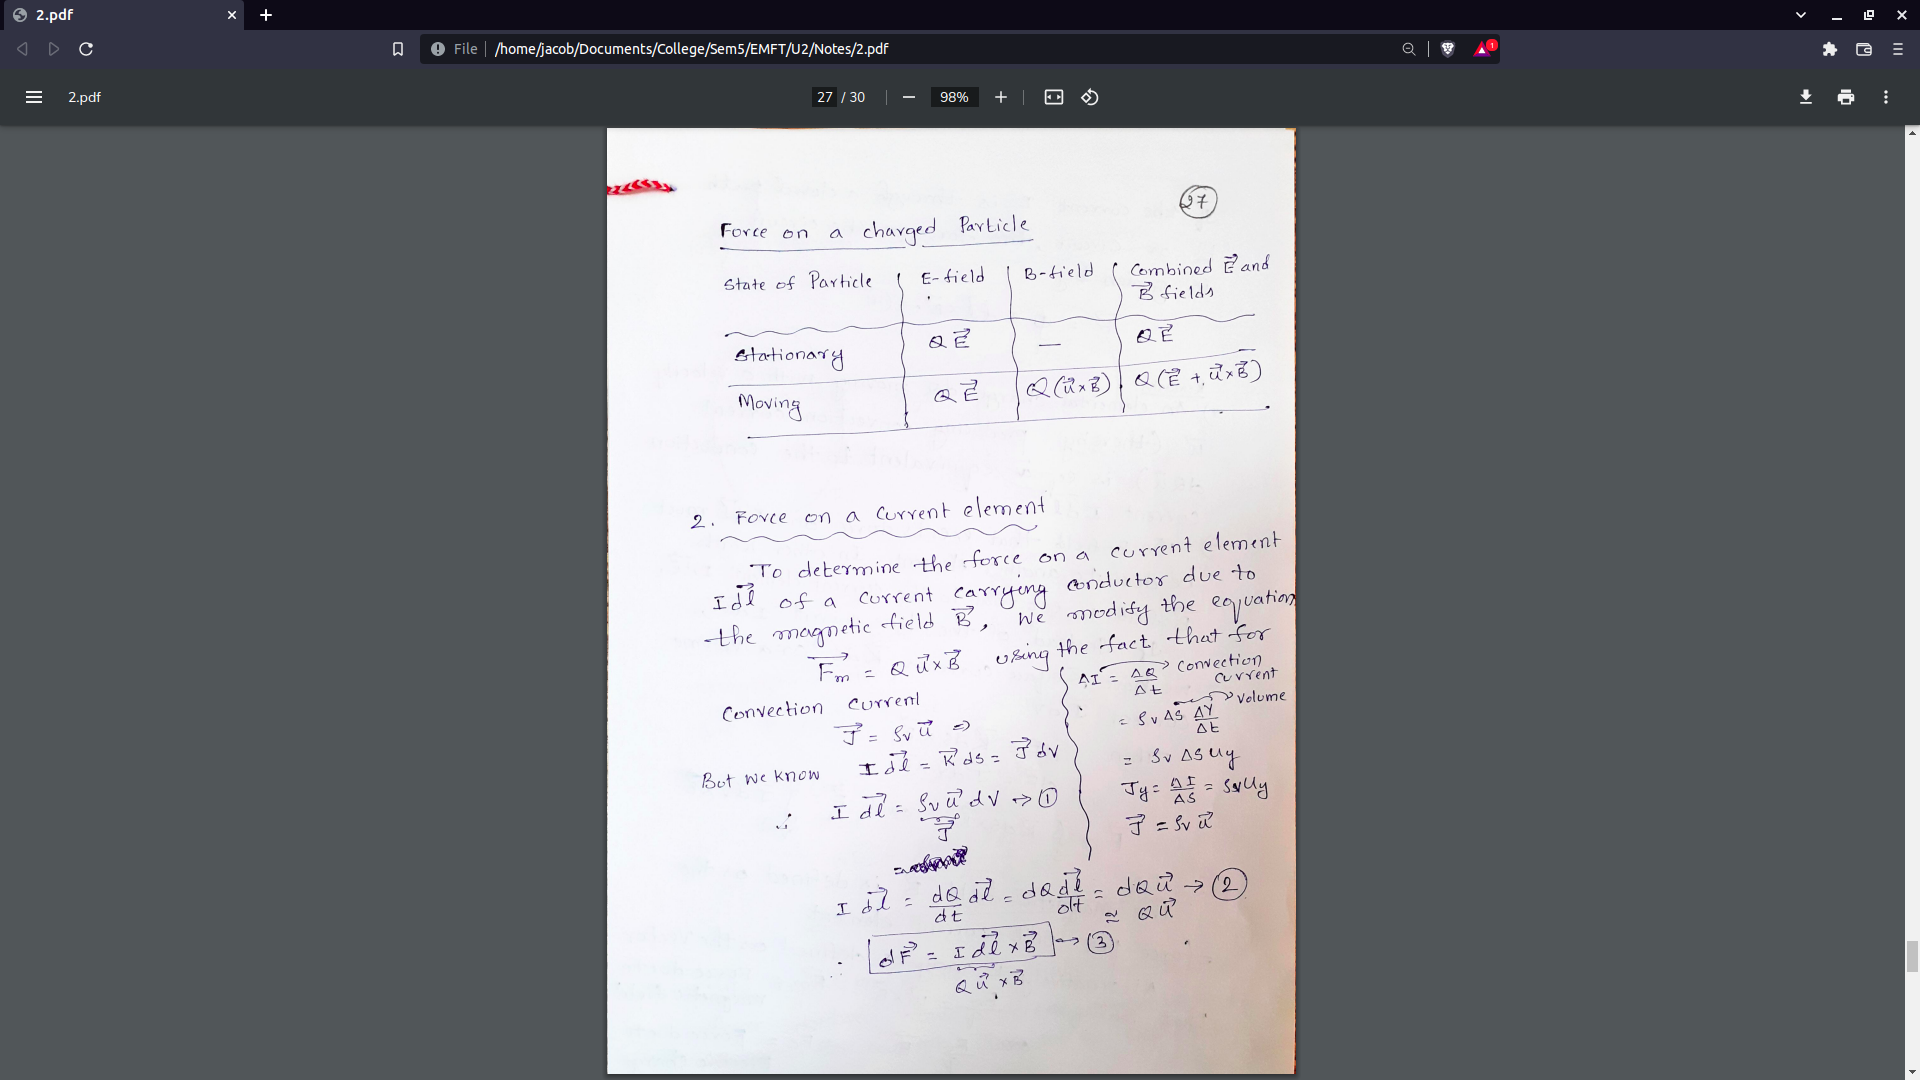 2.pdf
File /home/jacob/Documents/College/Sem5/EMFT/U2/Notes/2.pdf
1
2.pdf
27 / 30
98%
27
Force on a charged Particle
State of Particle E-field B-field Combined E⃗ and B⃗ fields
Stationary QE⃗ — QE⃗
Moving QE⃗ Q(u⃗×B⃗) Q(E⃗ + u⃗×B⃗)
2. Force on a current element
To determine the force on a current element
I dl⃗ of a current carrying conductor due to
the magnetic field B⃗, we modify the equation
F⃗m = Q u⃗×B⃗ using the fact that for
Convection current
J⃗ = ρv u⃗ ⇒
But we know I dl⃗ = K⃗ ds = J⃗ dv
∴ I dl⃗ = ρv u⃗ dv → ①
J⃗
ΔI = ΔQ/Δt → Convection current
= ρv ΔS ΔY/Δt → volume
= ρv ΔS uy
Jy = ΔI/ΔS = ρv uy
J⃗ = ρv u⃗
I dl⃗ = dQ/dt dl⃗ = dQ dl⃗/dt = dQ u⃗ → ②
≈ Q u⃗
∴ dF⃗ = I dl⃗ × B⃗ → ③
Q u⃗ × B⃗